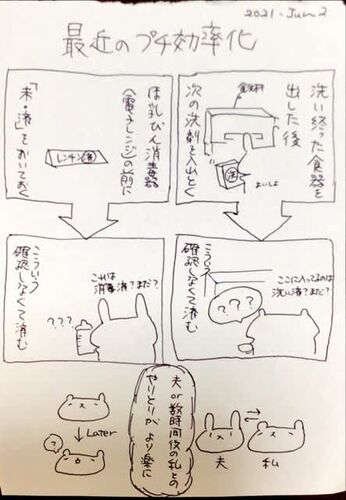 2021.Jun 2
最近のプチ効率化
洗い終った食器を
出した後
食洗機
次の洗剤を入れとく
よいしょ
ほ乳びん消毒器
(電子レンジ)の前に
レンチン済
「未・済」をおいておく
ここに入ってるのは
洗い済?まだ?
???
こういう
確認しなくて済む
これは
消毒済?まだ?
???
こういう
確認しなくて済む
夫 or 数時間後の私との
やりとりが より楽に
夫
私
Later
?